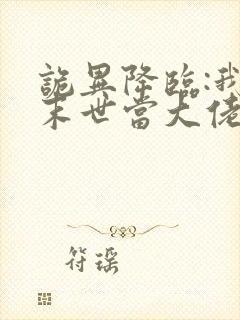 詭異降臨:我
末世當大佬
符瑤